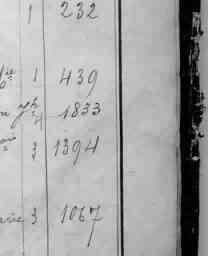 1 232
1 439
4 1833
3 1394
3 1067